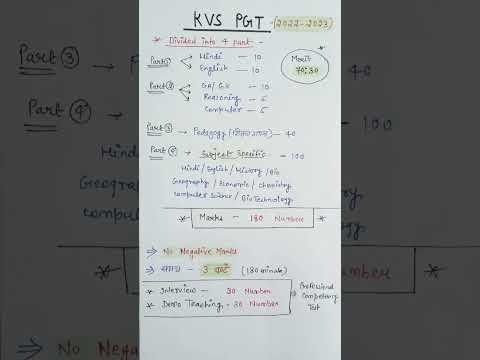 KVS PGT - (2022-2023)
* Divided into 4 part -
Part① Hindi - 10
English - 10
Merit
70:30
Part② GA/GK - 10
Reasoning - 5
Computer - 5
Part③ → Pedagogy (शिक्षा शास्त्र) - 40
Part④ → Subject Specific - 100
Hindi / English / History / Bio
Geography / Economic / Chemistry
Computer Science / BioTechnology
* Marks - 180 Number *
⇒ No Negative Marks
⇒ समय - 3 घण्टे (180 minute)
* Interview - 30 Number
* Demo Teaching - 30 Number
→ Professional
Competency
Test
Part③
Part④
Hindi
Geography
Computer
- 40
- 100
⇒ No Negat